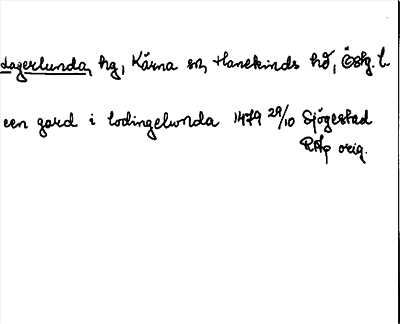 Lagerlunda, hg, Kärna sn, Hanekinds hd, Östg. l.
een gard i lodingelwnda 1479 29/10 Sjögestad
RAp orig.